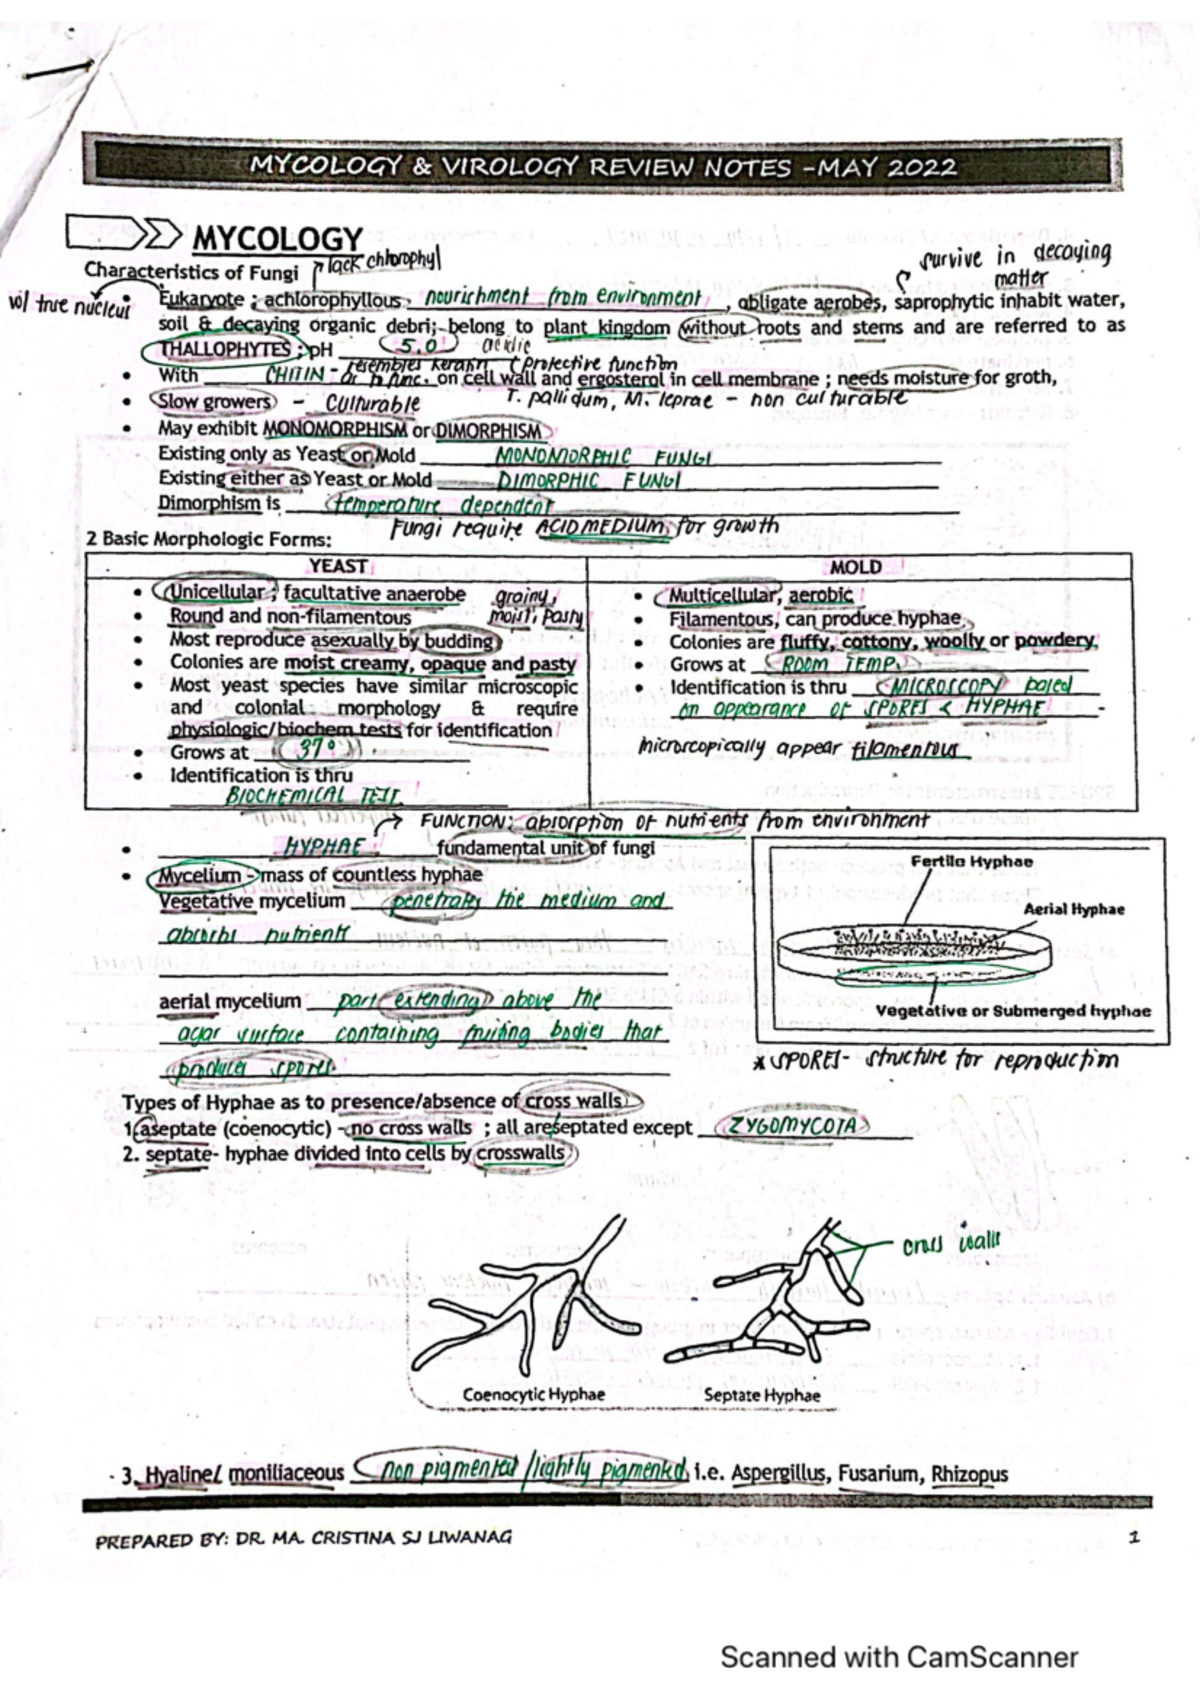 MYCOLOGY & VIROLOGY REVIEW NOTES -MAY 2022
MYCOLOGY
lack chlorophyl
survive in decaying
matter
Characteristics of Fungi
w/ true nucleui
Eukaryote ; achlorophyllous, nourichment from environment , obligate aerobes, saprophytic inhabit water,
soil & decaying organic debri; belong to plant kingdom without roots and stems and are referred to as
THALLOPHYTES ; pH 5.0 acidic
resembles keratin protective function
• With CHITIN - on cell wall and ergosterol in cell membrane ; needs moisture for groth,
• Slow growers - Culturable T. pallidum, M. leprae - non culturable
• May exhibit MONOMORPHISM or DIMORPHISM
Existing only as Yeast or Mold MONOMORPHIC FUNGI
Existing either as Yeast or Mold DIMORPHIC FUNGI
Dimorphism is temperature dependent
Fungi require ACID MEDIUM, for growth
2 Basic Morphologic Forms:
YEAST
• Unicellular ; facultative anaerobe grainy,
• Round and non-filamentous moist, pasty
• Most reproduce asexually by budding
• Colonies are moist creamy, opaque and pasty
• Most yeast species have similar microscopic
and colonial morphology & require
physiologic/biochem tests for identification
• Grows at 37°
• Identification is thru
BIOCHEMICAL TEST
MOLD
• Multicellular, aerobic
• Filamentous, can produce hyphae
• Colonies are fluffy, cottony, woolly or powdery.
• Grows at ROOM TEMP
• Identification is thru MICROSCOPY based
on appearance of SPORES & HYPHAE
microrcopically appear filamentour
FUNCTION: absorption of nutrients from environment
• HYPHAE fundamental unit of fungi
• Mycelium - mass of countless hyphae
Vegetative mycelium penetrates the medium and
absorbs nutrients
aerial mycelium part extending above the
agar surface containing fruiting bodies that
produces spores
Fertile Hyphae
Aerial Hyphae
Vegetative or Submerged hyphae
* SPORES- structure for reproduction
Types of Hyphae as to presence/absence of cross walls
1. aseptate (coenocytic) - no cross walls ; all are septated except ZYGOMYCOTA
2. septate- hyphae divided into cells by crosswalls
cross walls
Coenocytic Hyphae
Septate Hyphae
3. Hyaline/ moniliaceous non pigmented /lightly pigmented, i.e. Aspergillus, Fusarium, Rhizopus
PREPARED BY: DR. MA. CRISTINA SJ LIWANAG
1
Scanned with CamScanner